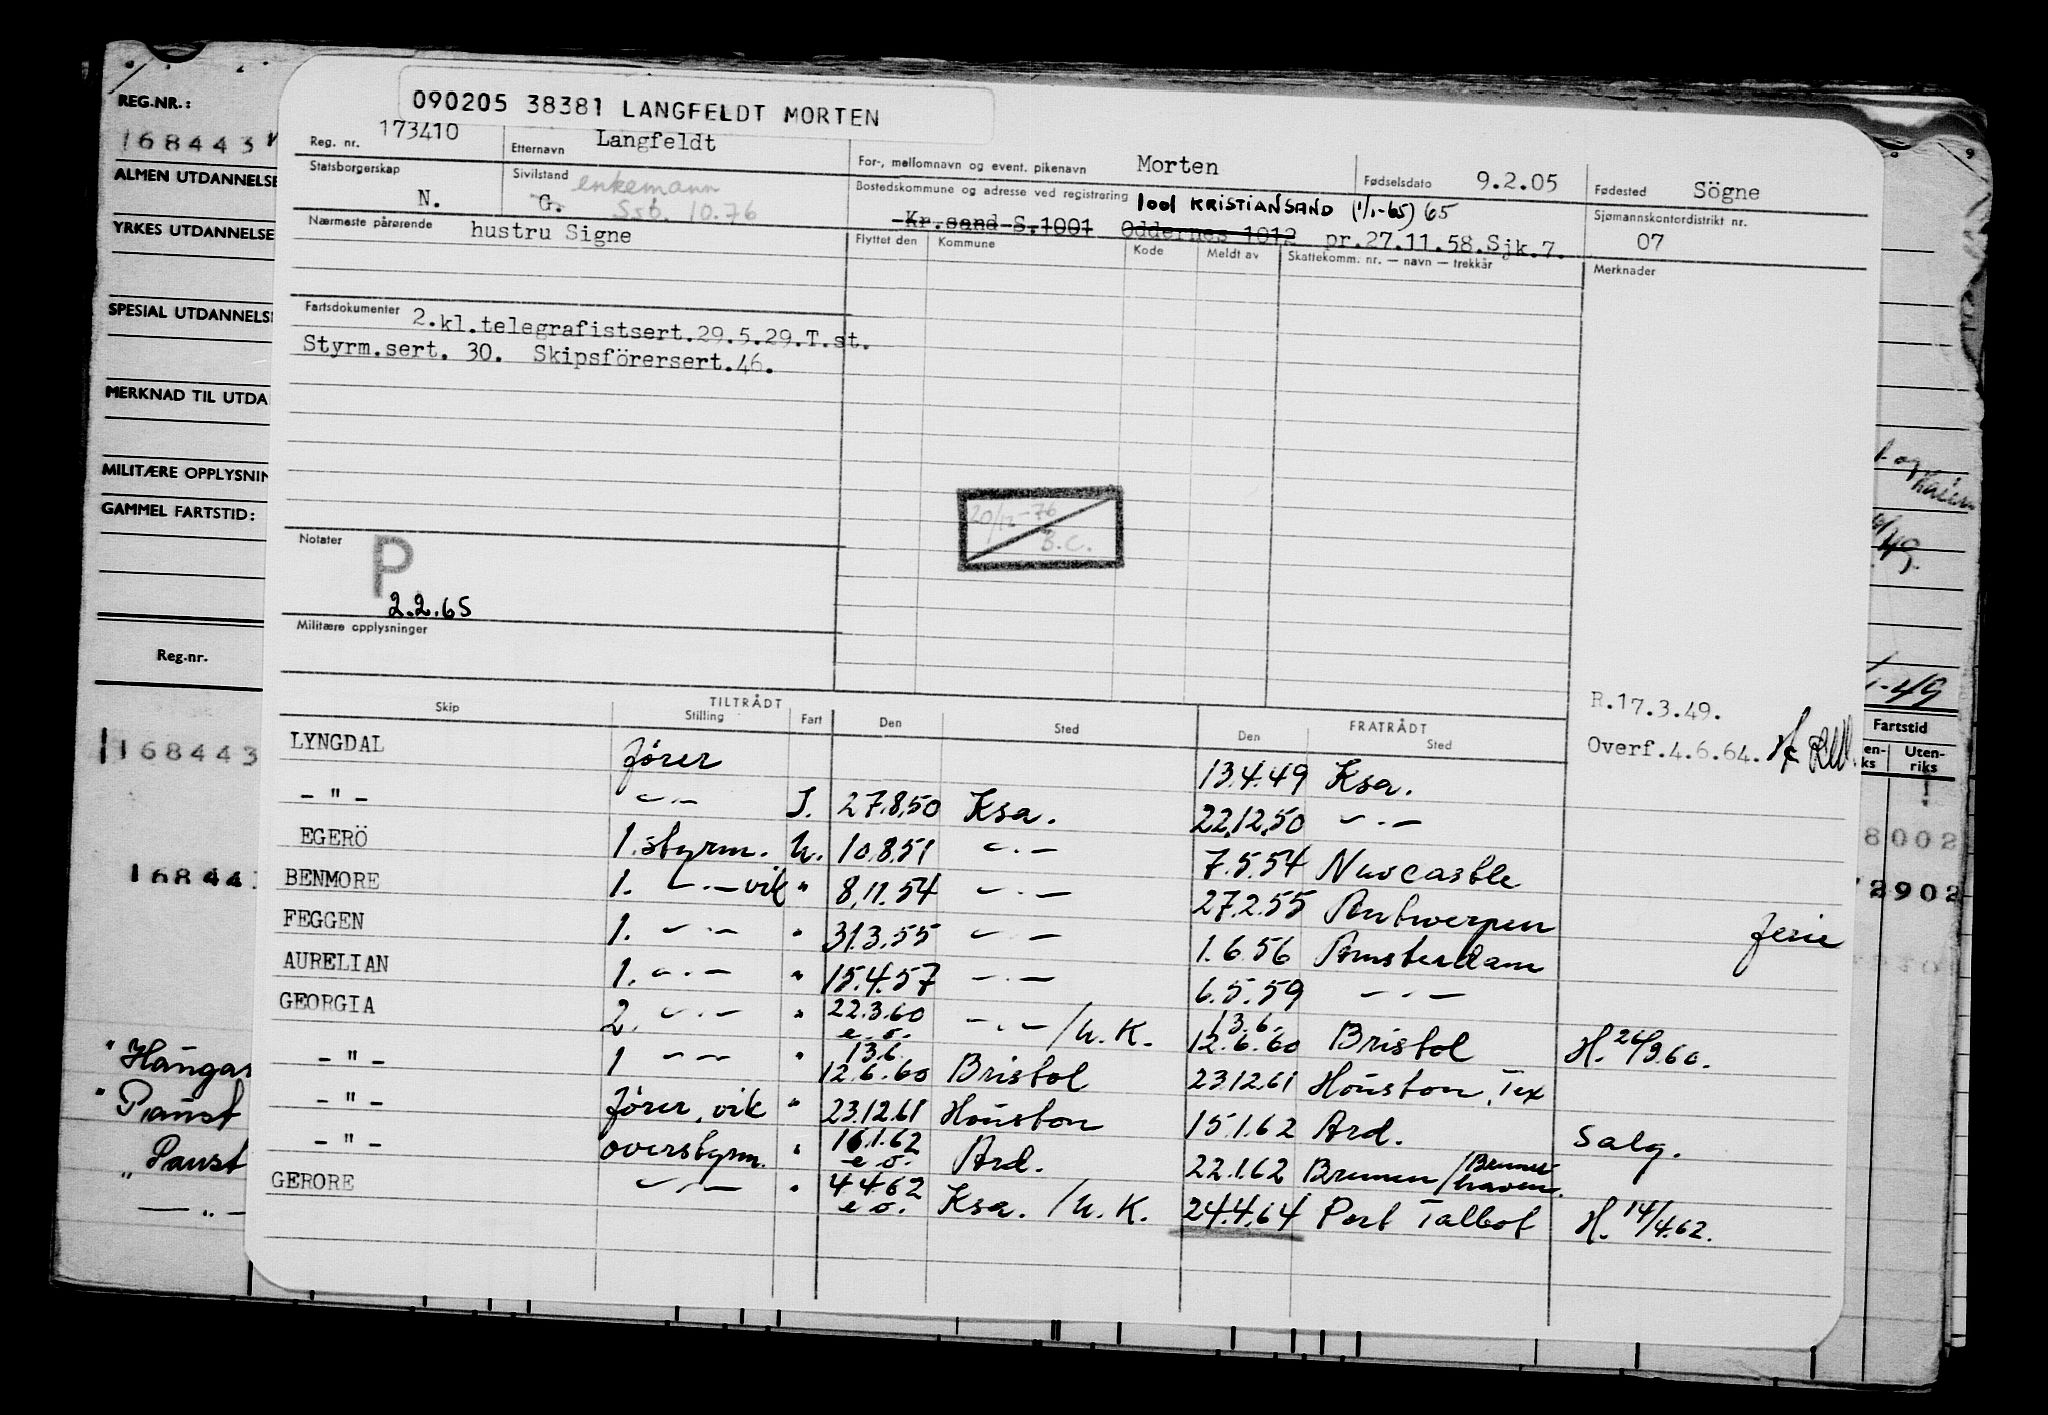 090205 38381 LANGFELDT MORTEN
REG.NR.:
168443
ALMEN UTDANNELSE
YRKES UTDANNELSE
SPESIAL UTDANNELSE
MERKNAD TIL UTDA
MILITÆRE OPPLYSNIN
GAMMEL FARTSTID:
Reg.nr.
168443
16844
Hangar
Paust
Paust
Reg. nr. 173410 Etternavn Langfeldt For-, mellomnavn og event. pikenavn Morten Fødselsdato 9.2.05 Fødested Sögne
Statsborgerskap N. Sivilstand G. enkemann Ssb. 10.76 Bostedskommune og adresse ved registrering 1001 KRISTIANSAND (1/1-65) 65
Kr.sand S.1001 Oddernes 1012 pr.27.11.58.Sjk.7. Sjømannskontordistrikt nr. 07
Nærmeste pårørende hustru Signe Flyttet den Kommune Kode Meldt av Skattekomm. nr. — navn — trekkår Merknader
Fartsdokumenter 2.kl.telegrafistsert.29.5.29.T.st.
Styrm.sert. 30. Skipsförersert.46.
20/12-76
B.C.
Notater P
2.2.65
Militære opplysninger
R.17.3.49.
Overf.4.6.64.
TILTRÅDT FRATRÅDT
Skip Stilling Fart Den Sted Den Sted
LYNGDAL fører 13.4.49 Ksa.
- " - -"- I. 27.8.50 Ksa. 22.12.50 -"-
EGERÖ 1.styrm. U. 10.8.51 -"- 7.5.54 Newcastle
BENMORE 1. -"- vik " 8.11.54 -"- 27.2.55 Antwerpen
FEGGEN 1. -"- " 31.3.55 -"- 1.6.56 Amsterdam ferie
AURELIAN 1. -"- " 15.4.57 -"- 6.5.59 -"-
GEORGIA 2. -"- " 22.3.60 e.o. -"- /U.K. 13.6. 12.6.60 Bristol H. 26/3.60.
- " - 1 -"- " 13.6. 12.6.60 Bristol 23.12.61 Houston, Tex
- " - fører, vik " 23.12.61 Houston 15.1.62 Ard. Salg.
- " - overstyrm. " 16.1.62 e.o. Ard. 22.1.62 Bremen/Bremerhaven.
GERORE -"- " 4.4.62 e.o. Ksa. /U.K. 24.4.64 Port Talbot H. 14/4.62.
1-49
Fartstid
Uten-
riks
8002
2902